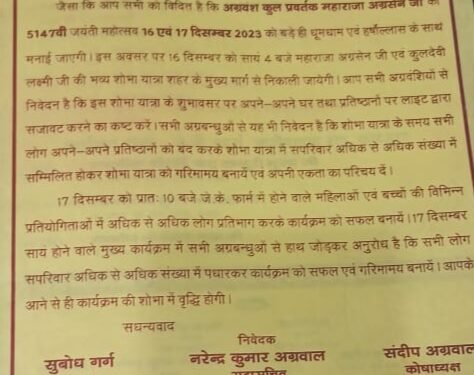 जैसा कि आप सभी को विदित है कि अग्रवंश कुल प्रवर्तक महाराजा अग्रसेन जी की
5147वीं जयंती महोत्सव 16 एवं 17 दिसम्बर 2023 को बड़े ही धूमधाम एवं हर्षोल्लास के साथ
मनाई जाएगी। इस अवसर पर 16 दिसम्बर को सायं 4 बजे महाराजा अग्रसेन जी एवं कुलदेवी
लक्ष्मी जी की भव्य शोभा यात्रा शहर के मुख्य मार्ग से निकाली जायेगी। आप सभी अग्रवंशियों से
निवेदन है कि इस शोभा यात्रा के शुभावसर पर अपने-अपने घर तथा प्रतिष्ठानों पर लाइट द्वारा
सजावट करने का कष्ट करें। सभी अग्रबन्धुओं से यह भी निवेदन है कि शोभा यात्रा के समय सभी
लोग अपने-अपने प्रतिष्ठानों को बंद करके शोभा यात्रा में सपरिवार अधिक से अधिक संख्या में
सम्मिलित होकर शोभा यात्रा को गरिमामय बनायें एवं अपनी एकता का परिचय दें।
17 दिसम्बर को प्रातः 10 बजे जे.के. फार्म में होने वाले महिलाओं एवं बच्चों की विभिन्न
प्रतियोगिताओं में अधिक से अधिक लोग प्रतिभाग करके कार्यक्रम को सफल बनायें। 17 दिसम्बर
सायं होने वाले मुख्य कार्यक्रम में सभी अग्रबन्धुओं से हाथ जोड़कर अनुरोध है कि सभी लोग
सपरिवार अधिक से अधिक संख्या में पधारकर कार्यक्रम को सफल एवं गरिमामय बनायें। आपके
आने से ही कार्यक्रम की शोभा में वृद्धि होगी।
सधन्यवाद
निवेदक
सुबोध गर्ग नरेन्द्र कुमार अग्रवाल संदीप अग्रवाल
कोषाध्यक्ष